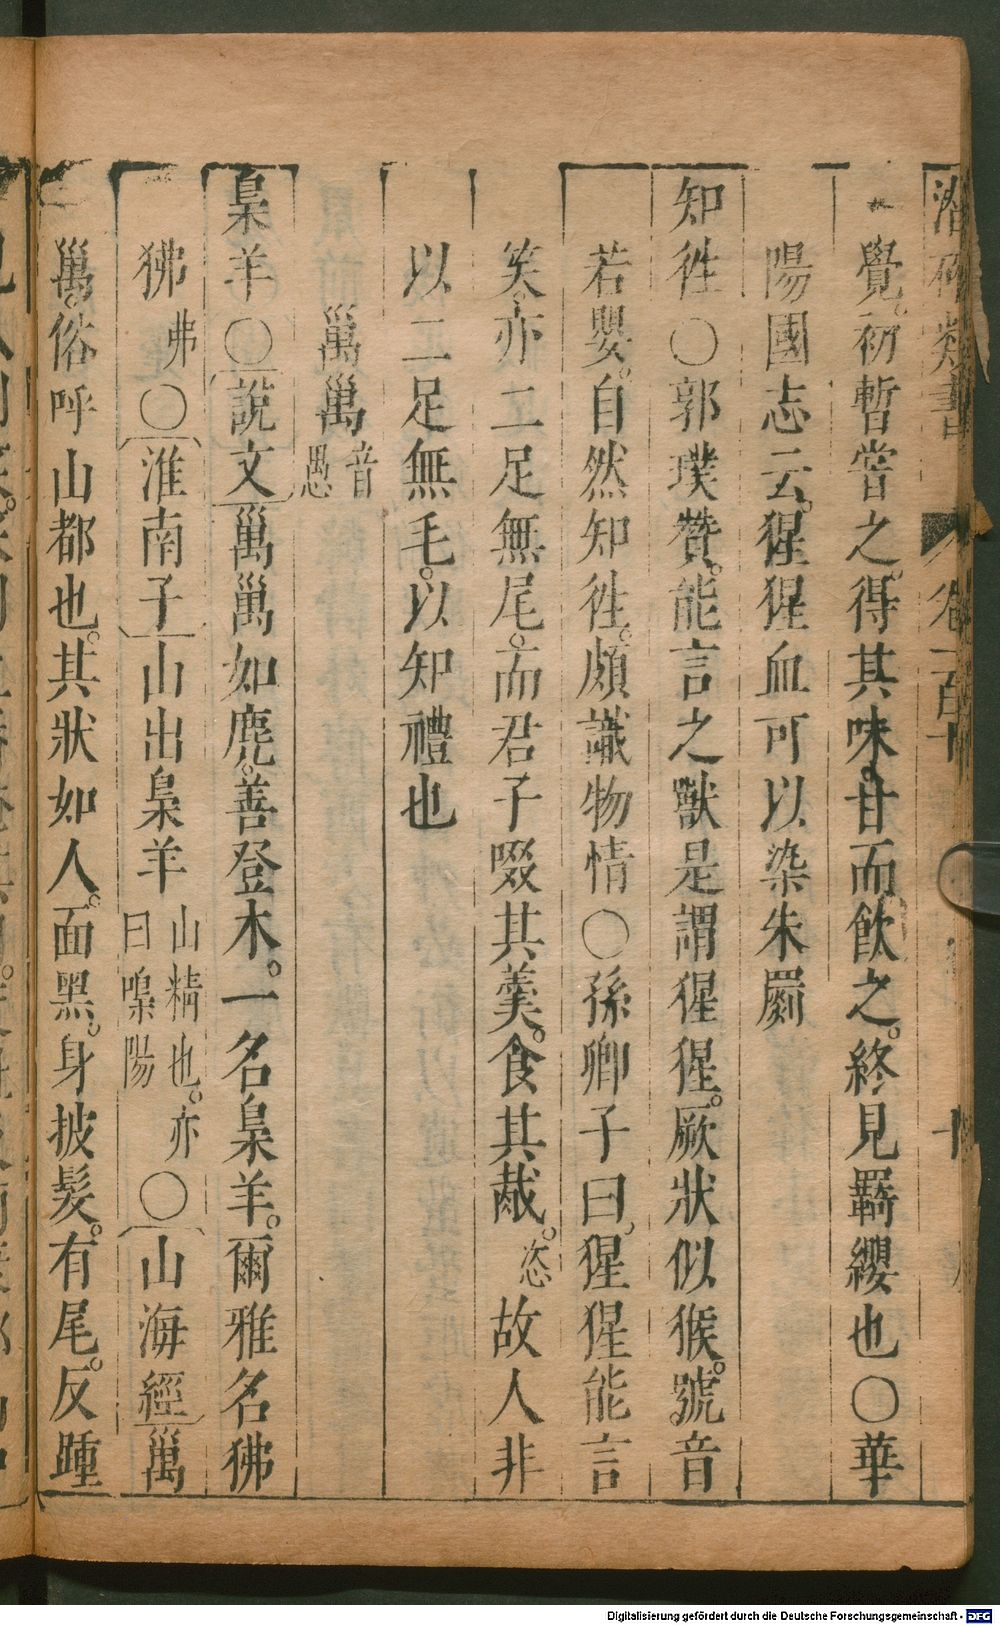 潛確類書 卷一百十 十
覺。初暫嘗之。得其味。甘而飲之。終見羈纓也〇華
陽國志云。猩猩血可以染朱罽
知徃〇郭璞贊。能言之獸是謂猩猩。厥狀似猴。號音
若嬰。自然知徃。頗識物情〇孫卿子曰。猩猩能言
笑。亦二足無尾。而君子啜其羹。食其胾。恣故人非
以二足無毛。以知禮也
𧔥𧔥音愚
梟羊〇說文𧔥𧔥如麂。善登木。一名梟羊。爾雅名狒
狒弗〇淮南子山出梟羊山精也。亦曰嘄陽〇山海經𧔥
𧔥。俗呼山都也。其狀如人。面黑。身披髮。有尾。反踵
Digitalisierung gefördert durch die Deutsche Forschungsgemeinschaft - DFG